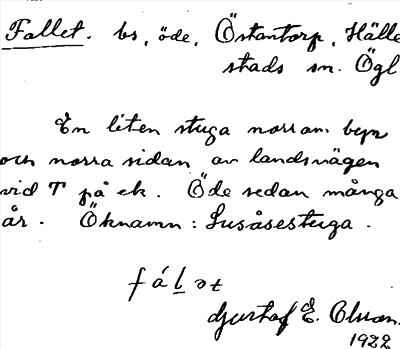 Fallet. bs, öde, Östantorp, Hälle
stads sn. Ögl
En liten stuga norr om byn
och norra sidan av landsvägen
vid T på ek. Öde sedan många
år. Öknamn: Lusåsestuga.
fálət
Gustaf E. Olsson.
1922